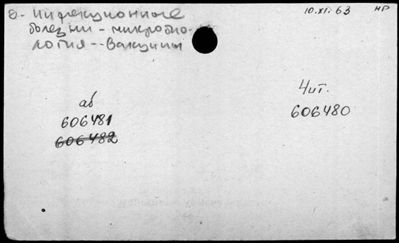 0- Инфекционные
болезни - микробио-
логия -- Вакцины
10.XI.63
НР
аб
606481
606482
Чит.
606480